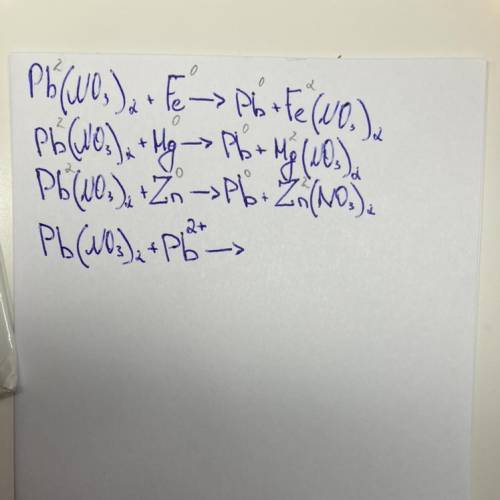 Pb²(NO₃)₂ + Fe⁰ → Pb⁰ + Fe²(NO₃)₂
Pb²(NO₃)₂ + Mg⁰ → Pb⁰ + Mg²(NO₃)₂
Pb²(NO₃)₂ + Zn⁰ → Pb⁰ + Zn²(NO₃)₂
Pb(NO₃)₂ + Pb²⁺ →